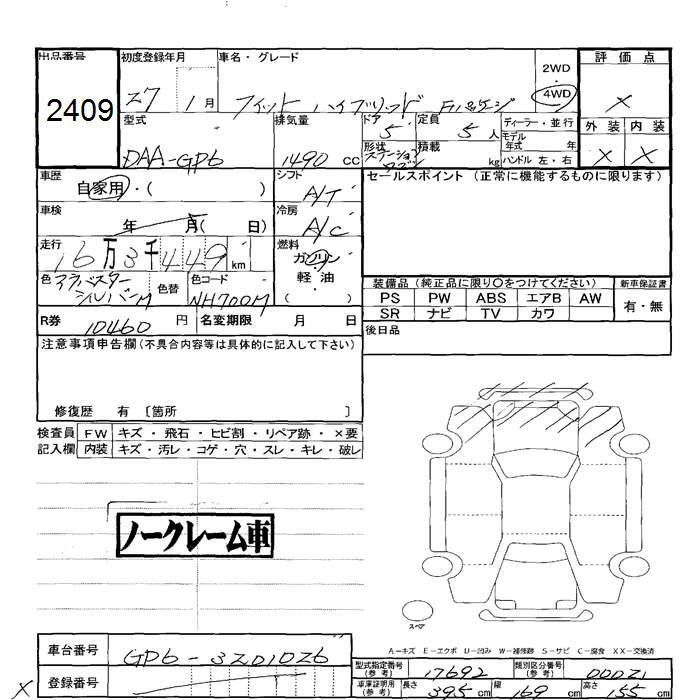 出品番号 2409
初度登録年月 27 1月
車名・グレード フィット ハイブリッド Fパッケージ
2WD・4WD
評価点 X
型式 DAA-GP6
排気量 1490 cc
ドア 5
定員 5人
ディーラー・並行
モデル年式 年
形状
積載 kg
ハンドル 左・右
外装 内装
X X
車歴 自家用・( )
シフト A/T
セールスポイント (正常に機能するものに限ります)
車検 年 月( 日)
冷房 A/C
走行 16万3千449km
燃料 ガソリン・軽油・( )
色 アラバスターシルバーM
色替
色コード NH700M
装備品 (純正品に限り〇をつけてください)
新車保証書
PS PW ABS エアB AW
有・無
SR ナビ TV カワ
R券 10460円
名変期限 月 日
後日品
注意事項申告欄(不具合内容等は具体的に記入して下さい)
修復歴 有 〔箇所 〕
検査員記入欄
FW キズ・飛石・ヒビ割・リペア跡・×要
内装 キズ・汚レ・コゲ・穴・スレ・キレ・破レ
ノークレーム車
スペア
A-キズ E-エクボ U-凹み W-補修跡 S-サビ C-腐食 XX-交換済
車台番号 GP6-3201026
型式指定番号(参考) 17692
類別区分番号(参考) 00021
X 登録番号
車庫証明用(参考) 長さ 395cm 幅 169cm 高さ 155cm